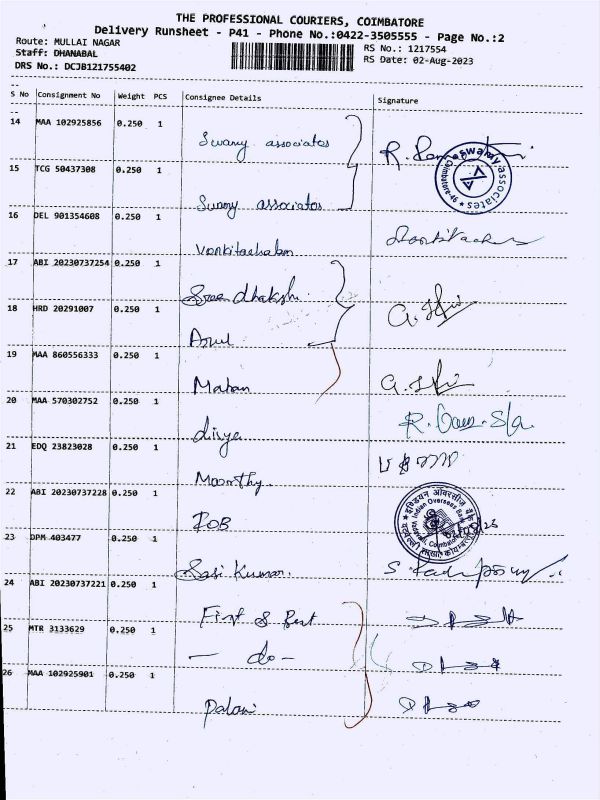 THE PROFESSIONAL COURIERS, COIMBATORE
Delivery Runsheet - P41 - Phone No.:0422-3505555 - Page No.:2
Route: MULLAI NAGAR
Staff: DHANABAL
DRS No.: DCJB121755402
RS No.: 1217554
RS Date: 02-Aug-2023
S No Consignment No Weight PCS Consignee Details Signature
14 MAA 102925856 0.250 1 Swamy associates
15 TCG 50437308 0.250 1 Swamy associates
16 DEL 901354608 0.250 1 Venkitachalam
17 ABI 20230737254 0.250 1 Sree dhakshi
18 HRD 20291007 0.250 1 Arul
19 MAA 860556333 0.250 1 Mahan
20 MAA 570302752 0.250 1 divya
21 EDQ 23823028 0.250 1 Moorthy
22 ABI 20230737228 0.250 1 IOB
Indian Overseas Bank
23 DPM 403477 0.250 1 Sasi Kumar.
24 ABI 20230737221 0.250 1 First & Best
25 MTR 3133629 0.250 1 - do -
26 MAA 102925901 0.250 1 Palani